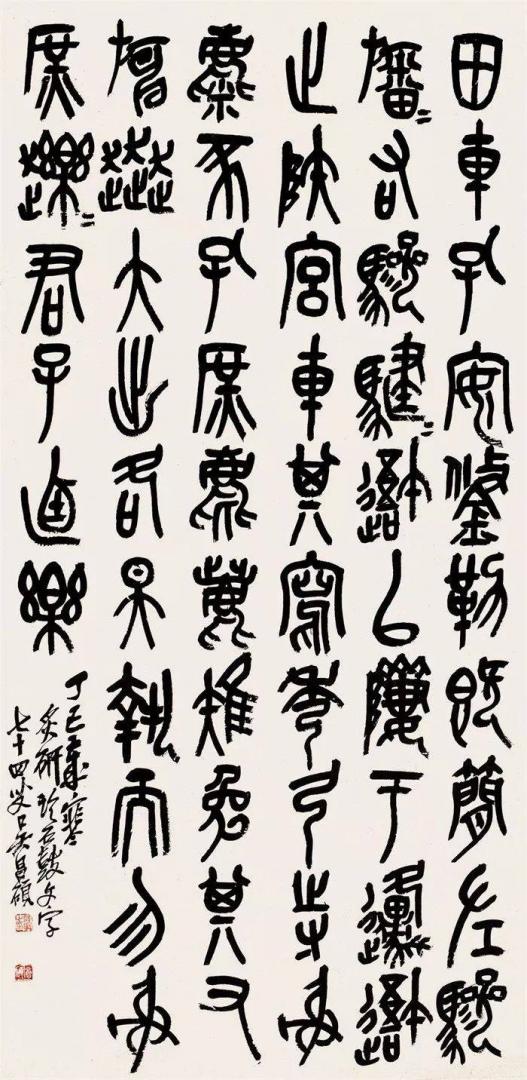 田車孔安鋚勒既簡左驂
旛=右驂騝=𨖍以隮于邍𨖍
止陝宮車其寫秀弓寺射
麋豕孔庶麀鹿雉兔其又
旃大出各昊執而勿射
庶君子迺樂
丁巳歲寒
炙研臨石鼓文字
七十四叟吳昌碩